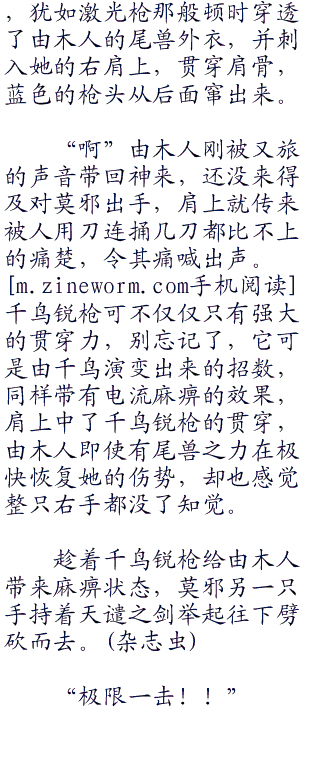 ，犹如激光枪那般顿时穿透
了由木人的尾兽外衣，并刺
入她的右肩上，贯穿肩骨，
蓝色的枪头从后面窜出来。
“啊”由木人刚被又旅
的声音带回神来，还没来得
及对莫邪出手，肩上就传来
被人用刀连捅几刀都比不上
的痛楚，令其痛喊出声。
[m.zineworm.com手机阅读]
千鸟锐枪可不仅仅只有强大
的贯穿力，别忘记了，它可
是由千鸟演变出来的招数，
同样带有电流麻痹的效果，
肩上中了千鸟锐枪的贯穿，
由木人即使有尾兽之力在极
快恢复她的伤势，却也感觉
整只右手都没了知觉。
趁着千鸟锐枪给由木人
带来麻痹状态，莫邪另一只
手持着天谴之剑举起往下劈
砍而去。(杂志虫)
“极限一击！！”